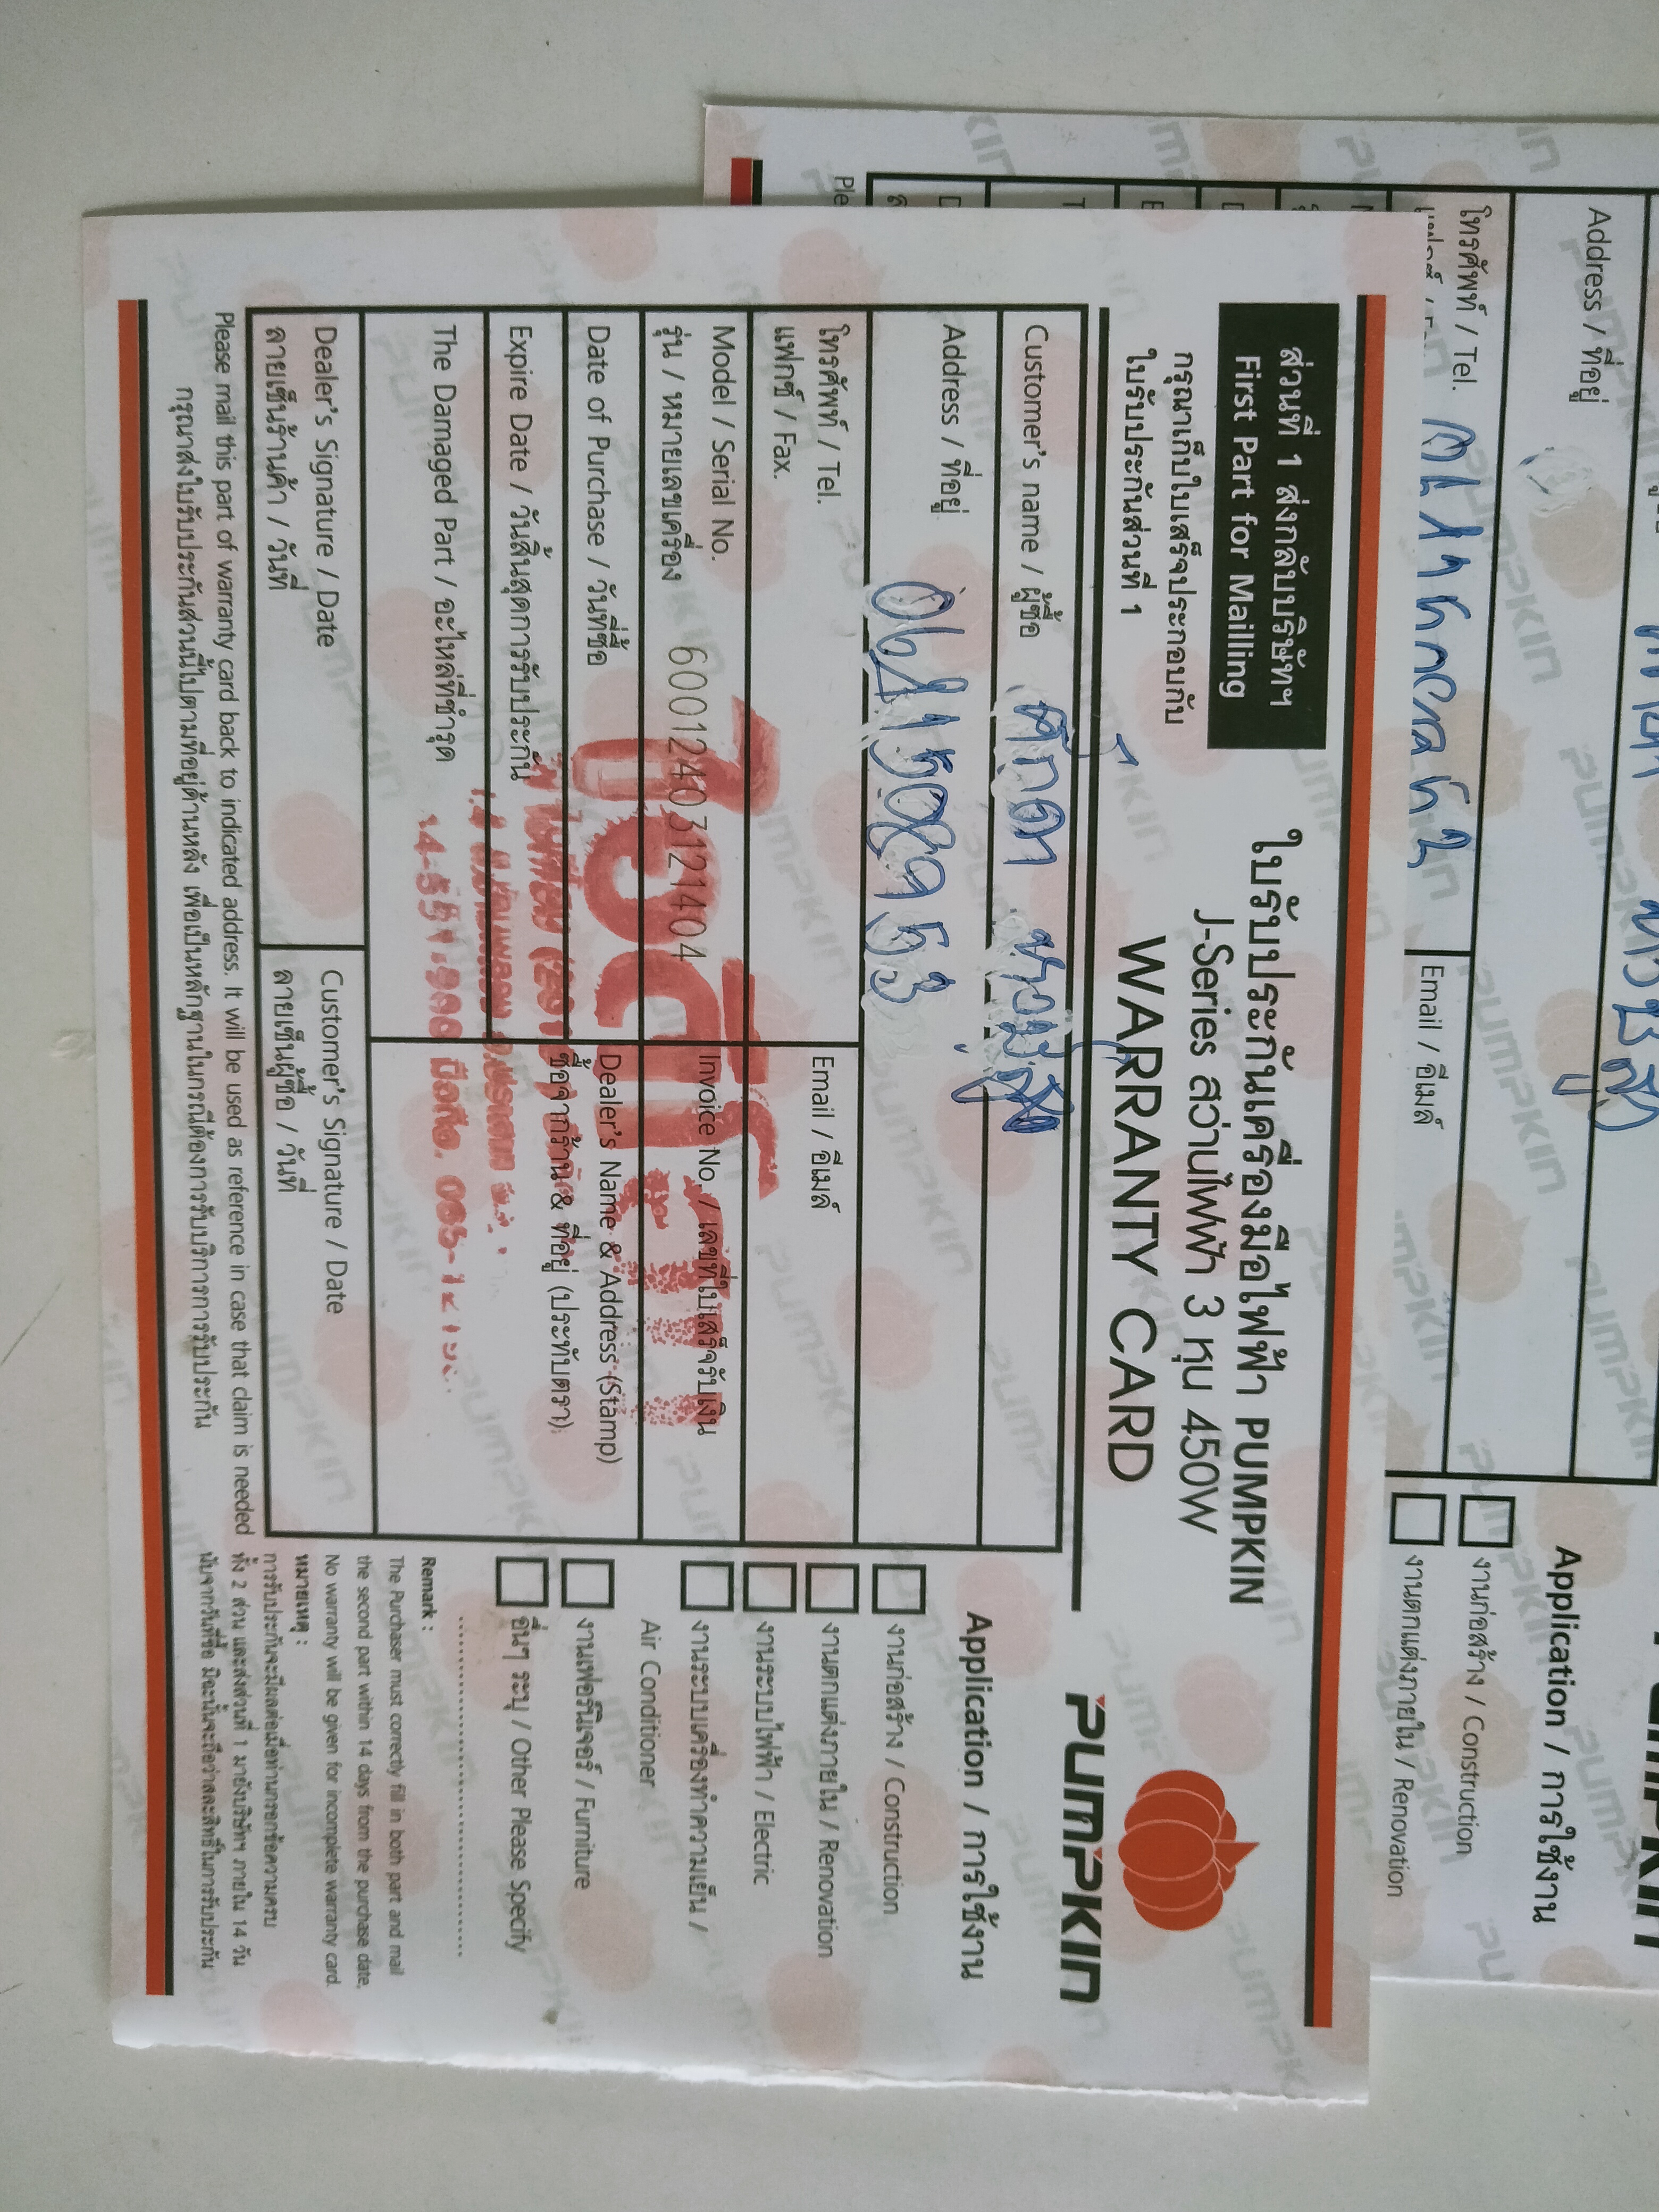 ส่วนที่ 1 ส่งกลับบริษัทฯ
First Part for Mailling
กรุณาเก็บใบเสร็จประกอบกับ
ใบรับประกันส่วนที่ 1
ใบรับประกันเครื่องมือไฟฟ้า PUMPKIN
J-Series สว่านไฟฟ้า 3 หุน 450W
WARRANTY CARD
PUMPKIN
Customer's name / ผู้ซื้อ
Address / ที่อยู่
โทรศัพท์ / Tel.
แฟกซ์ / Fax.
Email / อีเมล์
Model / Serial No.
รุ่น / หมายเลขเครื่อง 60012403121404
Invoice No. / เลขที่ใบเสร็จรับเงิน
Date of Purchase / วันที่ซื้อ
Dealer's Name & Address (Stamp)
ซื้อจากร้าน & ที่อยู่ (ประทับตรา)
Expire Date / วันสิ้นสุดการรับประกัน
The Damaged Part / อะไหล่ที่ชำรุด
Dealer's Signature / Date
ลายเซ็นร้านค้า / วันที่
Customer's Signature / Date
ลายเซ็นผู้ซื้อ / วันที่
Please mail this part of warranty card back to indicated address. It will be used as reference in case that claim is needed
กรุณาส่งใบรับประกันส่วนนี้ไปตามที่อยู่ด้านหลัง เพื่อเป็นหลักฐานในกรณีต้องการรับบริการการรับประกัน
Application / การใช้งาน
งานก่อสร้าง / Construction
งานตกแต่งภายใน / Renovation
งานระบบไฟฟ้า / Electric
งานระบบเครื่องทำความเย็น /
Air Conditioner
งานเฟอร์นิเจอร์ / Furniture
อื่นๆ ระบุ / Other Please Specify
Remark :
The Purchaser must correctly fill in both part and mail
the second part within 14 days from the purchase date,
No warranty will be given for incomplete warranty card.
หมายเหตุ :
การรับประกันจะมีผลต่อเมื่อท่านกรอกข้อความครบ
ทั้ง 2 ส่วน และส่งส่วนที่ 1 มายังบริษัทฯ ภายใน 14 วัน
นับจากวันที่ซื้อ มิฉะนั้นจะถือว่าสละสิทธิ์ในการรับประกัน
Address / ที่อยู่
โทรศัพท์ / Tel.
Email / อีเมล์
Application / การใช้งาน
งานก่อสร้าง / Construction
งานตกแต่งภายใน / Renovation